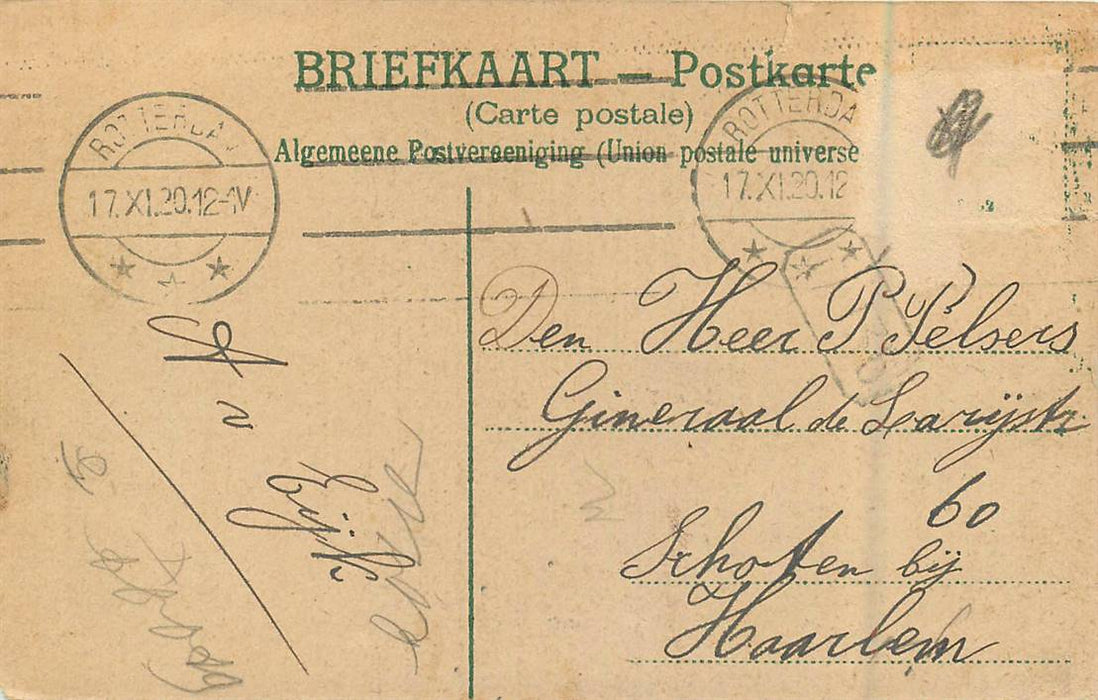 BRIEFKAART — Postkarte
(Carte postale)
Algemeene Postvereeniging (Union postale universe
ROTTERDA
17.XI.20.12-1V
ROTTERDA
17.XI.20.12
Den Heer P Pelsers
Gineraal de Larijstr
60
Schoten bij
Haarlem
A v Eijk